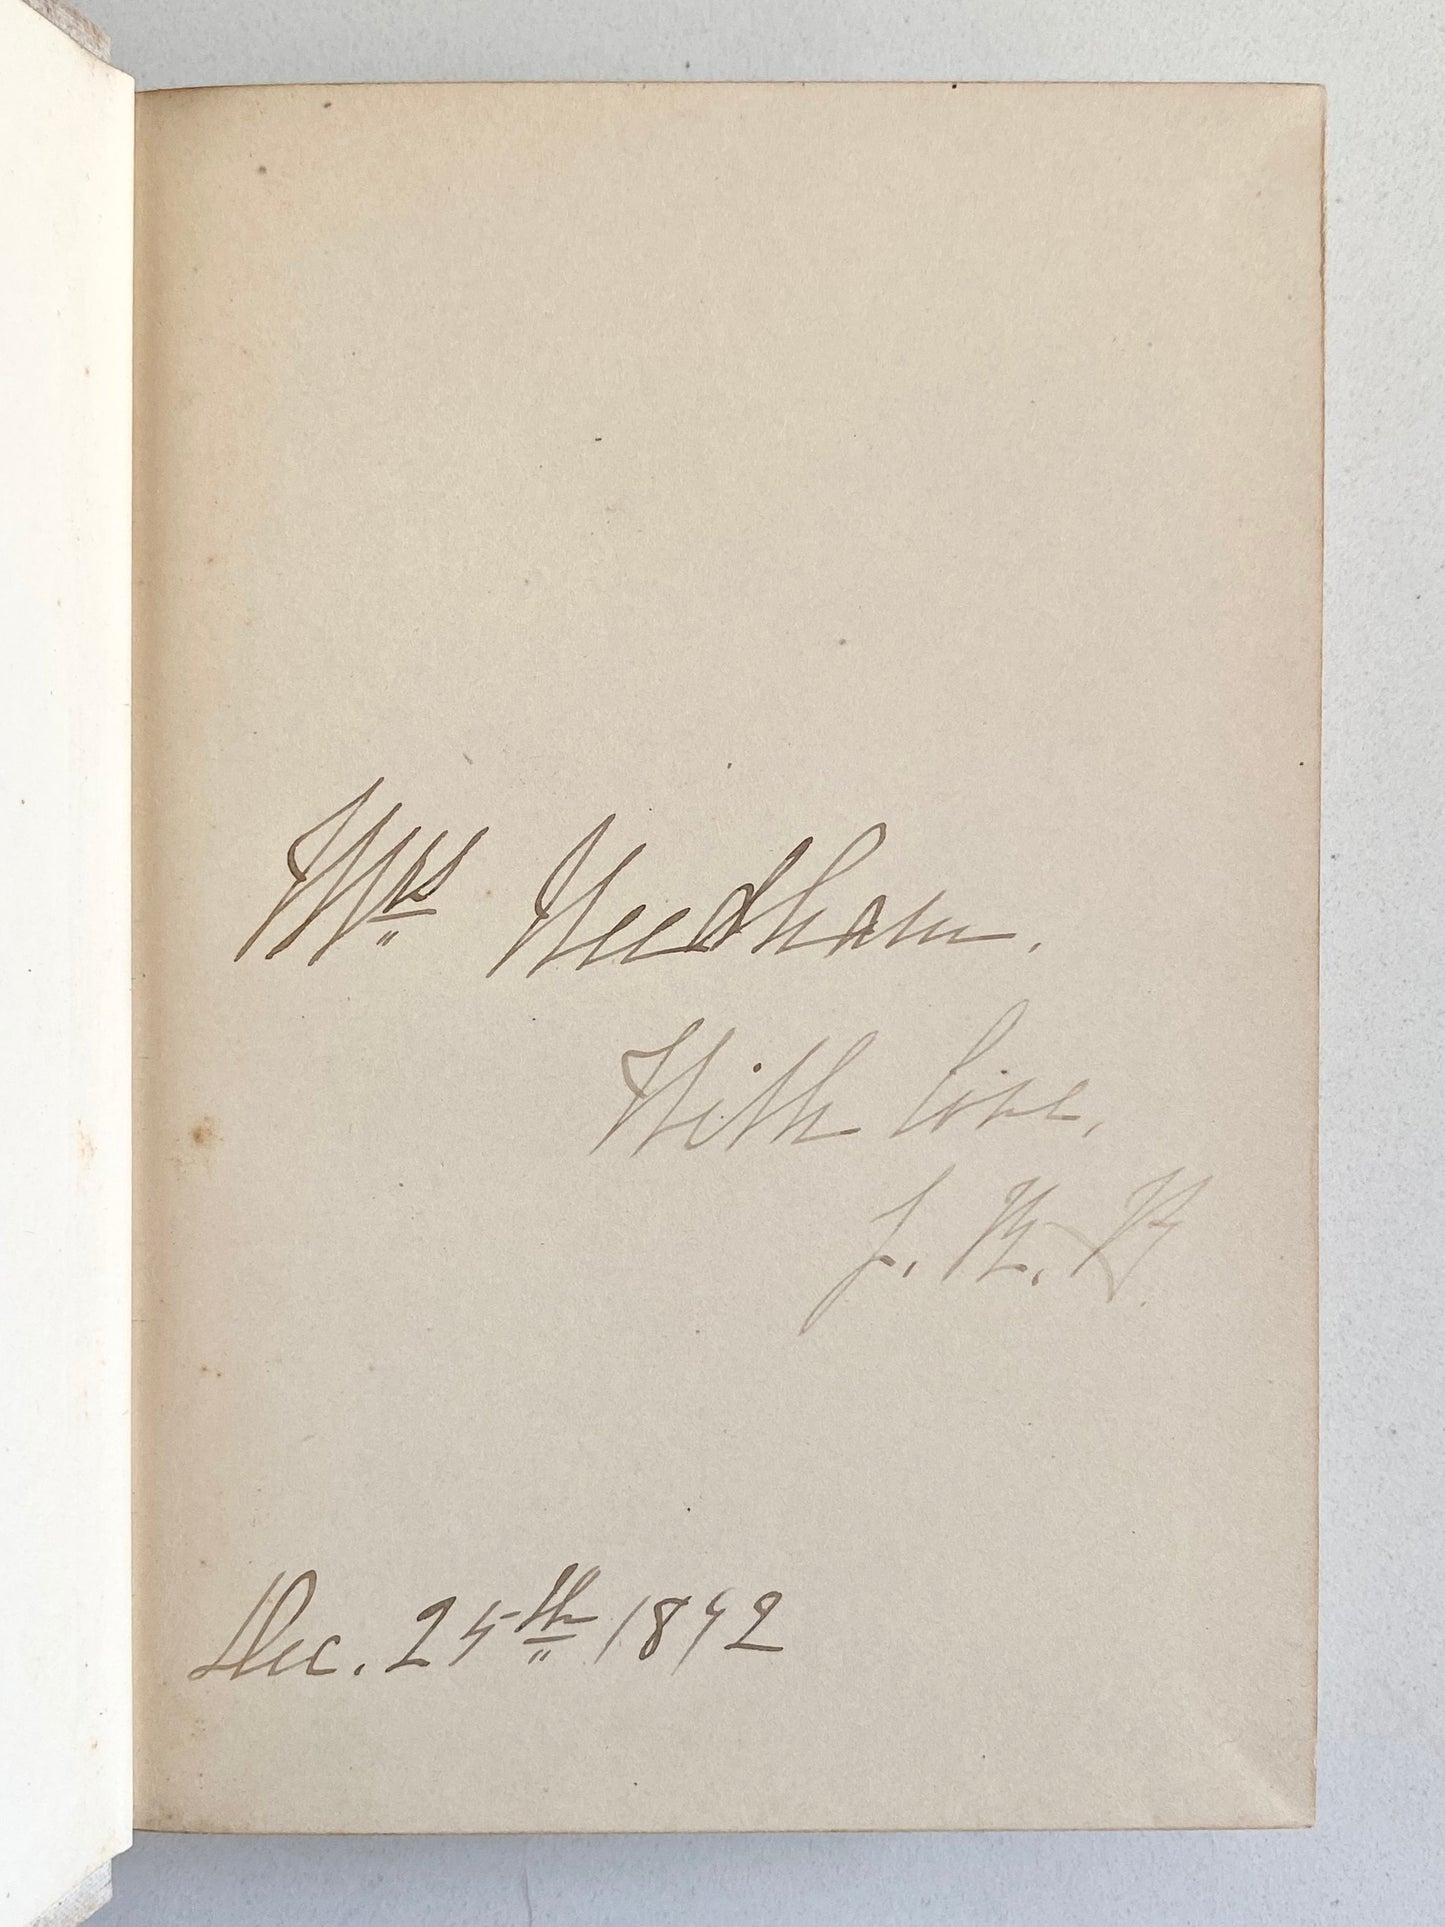 Mrs Needham.
With love,
Dec. 25th 1892